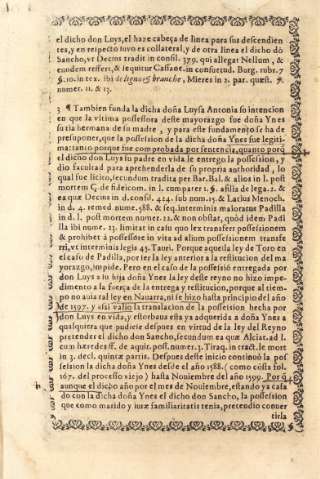 el dicho don Luys, el haze cabeça de linea para sus descendien
tes, y en respecto suyo es collateral, y de otra linea el dicho dõ
Sancho, ut Decius tradit in consil. 379. qui allegat Nellum, &
eundem refert, & sequitur Cassane. in consuetud. Borg. rubr. 7
§. 10. in tex. ibi de ligne & branche, Mieres in 2. par. quæst.
numer. 11. & 13.
3 ¶ Tambien funda la dicha doña Luysa Antonia so intencion
en que la vltima possessora deste mayorazgo fue doña Ynes
su tia hermana de su madre, y para este fundamento se ha de
presuponer, que la possession de la dicha doña Ynes fue legiti-
ma: tanto porque fue comprobada por sentencia, quanto porq̃
el dicho don Luys su padre en vida le entrego la possession, y
dio facultad para aprehenderla de su propria authoridad, lo
qual fue licito, secundum tradita per Bar. Bal. & alios in l. post
mortem C. de fideicom. in l. cum pater 1. §. a filia de lega. 2. &
ea quæ Decius in d. consil. 424. sub num. 15. & Latius Menoch.
in d. 4. remed. nume. 588. & seq. in terminis maioratus Padilla
in d. l. post mortem numer. 22. & non obstat, quòd idem Padi
lla ibi nume. 23. limitat in casu quo lex transfert possessionem
& prohibet à possidente in vita ad alium possessionem transfe
rri, vt in terminis legis 45. Tauri. Porque aquesta ley de Toro en
el caso de Padilla, por ser la ley anterior a la restitucion del ma
yorazgo, impide. Pero en el caso de la possessiõ entregada por
don Luys a su hija doña Ynes la ley deste reyno no hizo impe-
dimento a la força de la entrega y restitucion, porque al tiem-
po no auia tal ley en Nauarra, ni se hizo hasta principio del año
de 1597. y assi valio la translacion de la possesion hecha por
don Luys en vida, y estorbua esta ya adquerida a doña Ynes a
qualquiera que pudiere despues en virtud de la ley del Reyno
pretender el dicho don Sancho, secundum ea quæ Alciat. ad l.
cum hæredes ff. de aquir. poss. numer. 3. Tiraq. in tract. le mort
in 3. decl. quinta partis. Despues deste inicio continuò la pos
session la dicha doña Ynes desde el año 1588. ( como consta fol.
167. del processo viejo ) hasta Nouiembre del año 1599. Porq̃
aunque el dicho año por el mes de Nouiembre, estando ya casa
do con la dicha doña Ynes el dicho don Sancho, la possession
que como marido y iure familiaritatis tenia, pretendio conuer
tirla